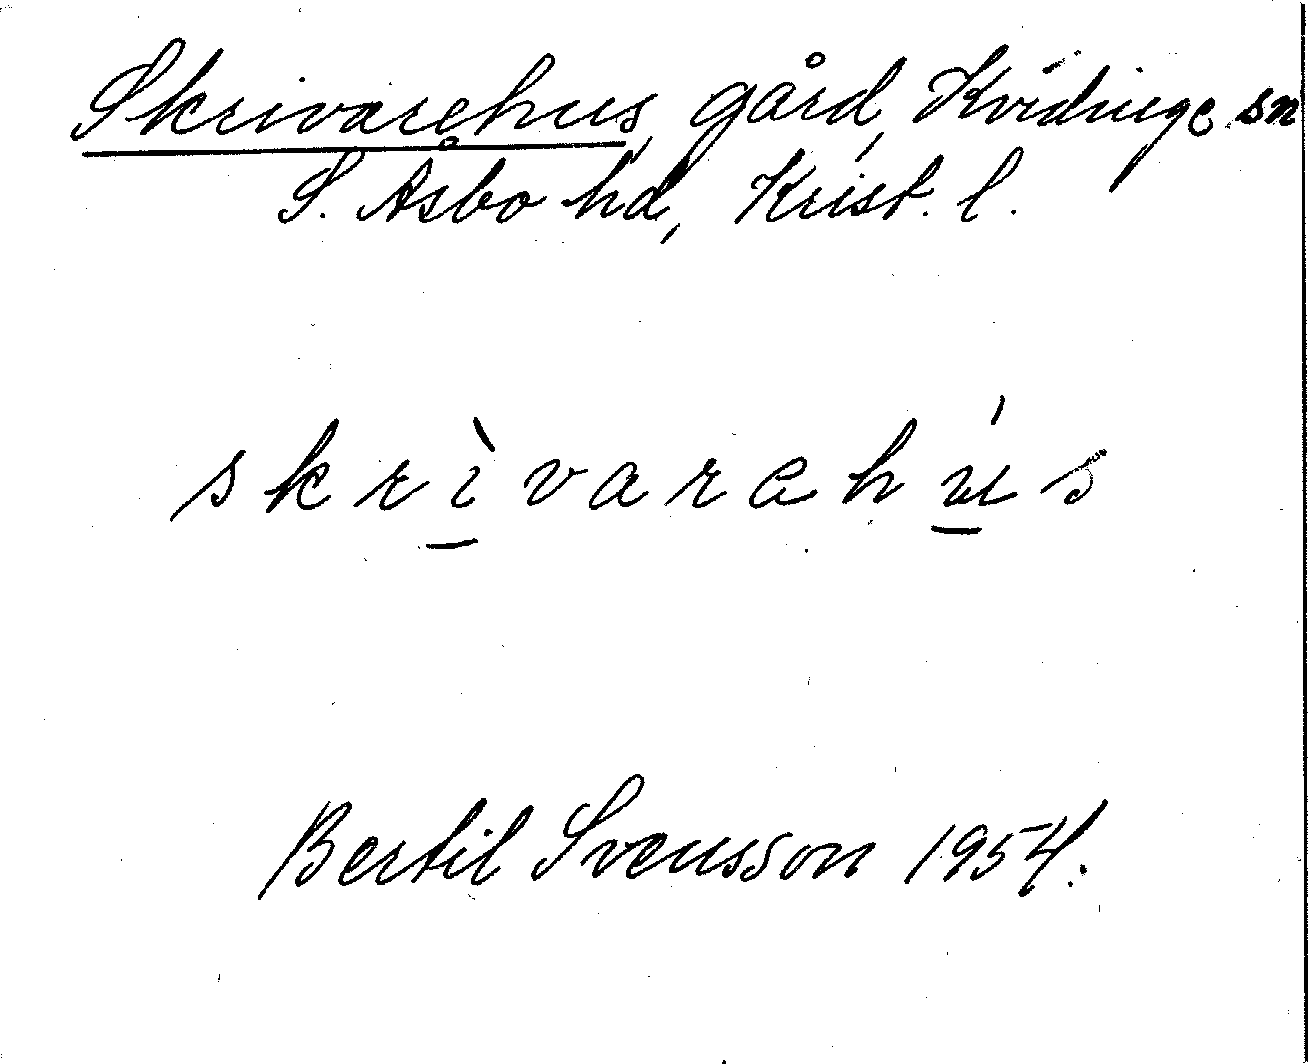 Skrivarehus, gård, Kvidinge sn
S. Åsbo hd, Krist. l.
skrì̠varehú̠s
Bertil Svensson 1954.